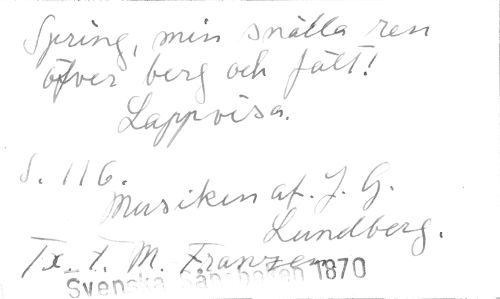 Spring, min snälla ren
öfver berg och fält!
Lappvisa.
S. 116.
Musiken af. J. G.
Lundberg.
Tx. f. M. Franzen
Svenska 1870